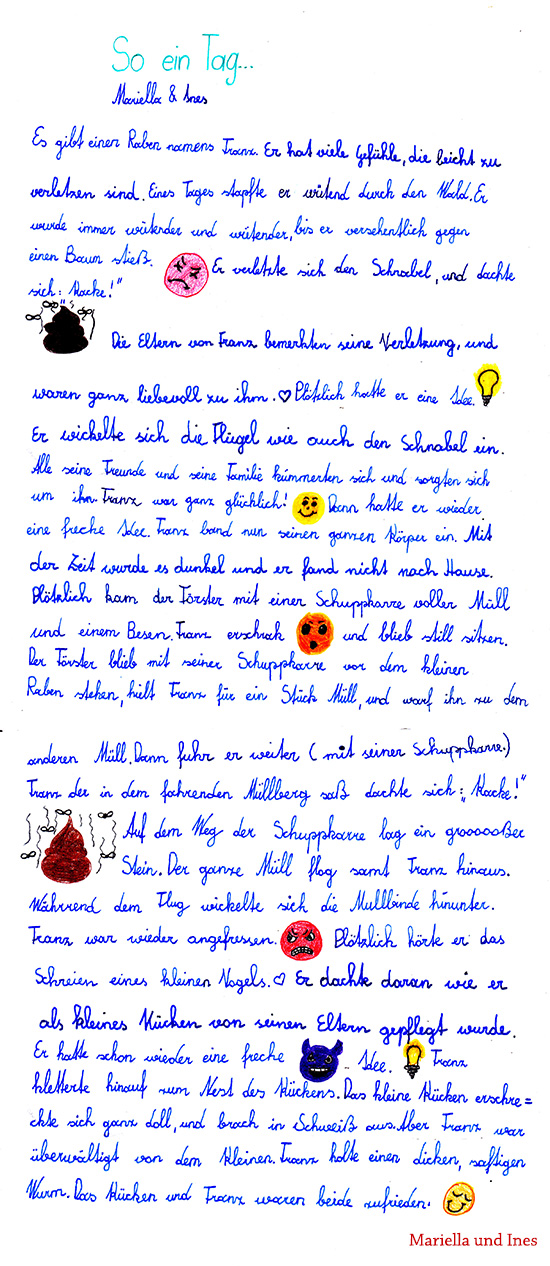 So ein Tag...
Mariella & Ines
Es gibt einen Raben namens Franz. Er hat viele Gefühle, die leicht zu
verletzen sind. Eines Tages stapfte er wütend durch den Wald. Er
wurde immer wütender und wütender, bis er versehentlich gegen
einen Baum stieß. Er verletzte sich den Schnabel, und dachte
sich: „Kacke!"
Die Eltern von Franz bemerkten seine Verletzung, und
waren ganz liebevoll zu ihm. ♡ Plötzlich hatte er eine Idee.
Er wickelte sich die Flügel wie auch den Schnabel ein.
Alle seine Freunde und seine Familie kümmerten sich und sorgten sich
um ihn. Franz war ganz glücklich! Dann hatte er wieder
eine freche Idee. Franz band nun seinen ganzen Körper ein. Mit
der Zeit wurde es dunkel und er fand nicht nach Hause.
Plötzlich kam der Förster mit einer Schuppkarre voller Müll
und einem Besen. Franz erschrak und blieb still sitzen.
Der Förster blieb mit seiner Schuppkarre vor dem kleinen
Raben stehen, hielt Franz für ein Stück Müll, und warf ihn zu dem
anderen Müll. Dann fuhr er weiter (mit seiner Schuppkarre.)
Franz der in dem fahrenden Müllberg saß dachte sich: „Kacke!"
Auf dem Weg der Schuppkarre lag ein groooooßer
Stein. Der ganze Müll flog samt Franz hinaus.
Währrend dem Flug wickelte sich die Mullbinde hinunter.
Franz war wieder angefressen. Plötzlich hörte er das
Schreien eines kleinen Vogels. ♡ Er dachte daran wie er
als kleines Kücken von seinen Eltern gepflegt wurde.
Er hatte schon wieder eine freche Idee. Franz
kletterte hinauf zum Nest des Kückens. Das kleine Kücken erschre=
ckte sich ganz doll, und brach in Schweiß aus. Aber Franz war
überwältigt von dem Kleinen. Franz holte einen dicken, saftigen
Wurm. Das Kücken und Franz waren beide zufrieden.
Mariella und Ines